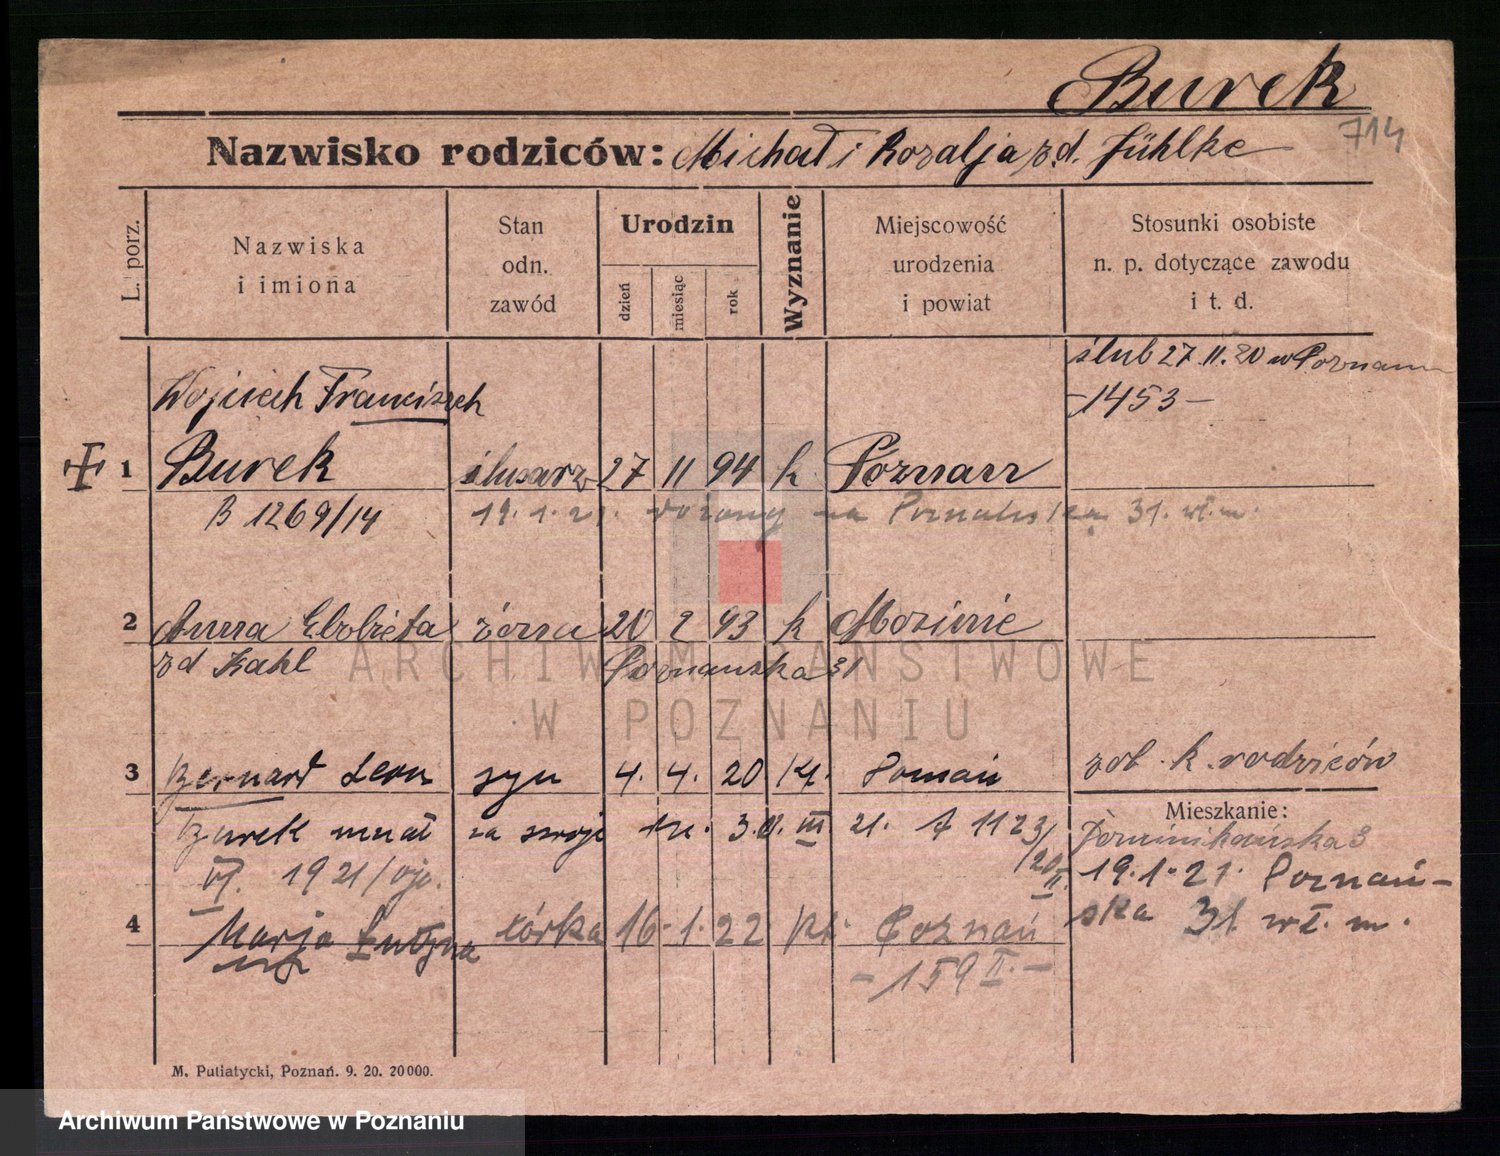 Burek
714
Nazwisko rodziców: Michał i Rozalja zd. Jühlke
L. porz.
Nazwiska
i imiona
Stan
odn.
zawód
Urodzin
dzień
miesiąc
rok
Wyznanie
Miejscowość
urodzenia
i powiat
Stosunki osobiste
n. p. dotyczące zawodu
i t. d.
ślub 27.11.20 w Poznaniu
-1453-
Wojciech Franciszek
1 Burek ślusarz 27 11 94 k Poznań
B 1269/14
19.1.21. na 31. wł. m.
2 Anna Elżbieta żona 20 2 93 k Mosinie
zd Kahl Poznańska 31
ARCHIWUM PAŃSTWOWE
W POZNANIU
3 Bernard Leon syn 4. 4. 20 kt. Poznań zob. k. rodziców
Mieszkanie:
Burek uznał za swoje III 21. A 1123/
/20
II.
Dominikańska 3
VI. 1921/
19.1.21. Poznań-
ska 31 wł. m.
4 Marja Ludgna córka 16. 1. 22 kt. Poznań
-159 II.-
M. Putiatycki, Poznań. 9. 20. 20000.
Archiwum Państwowe w Poznaniu